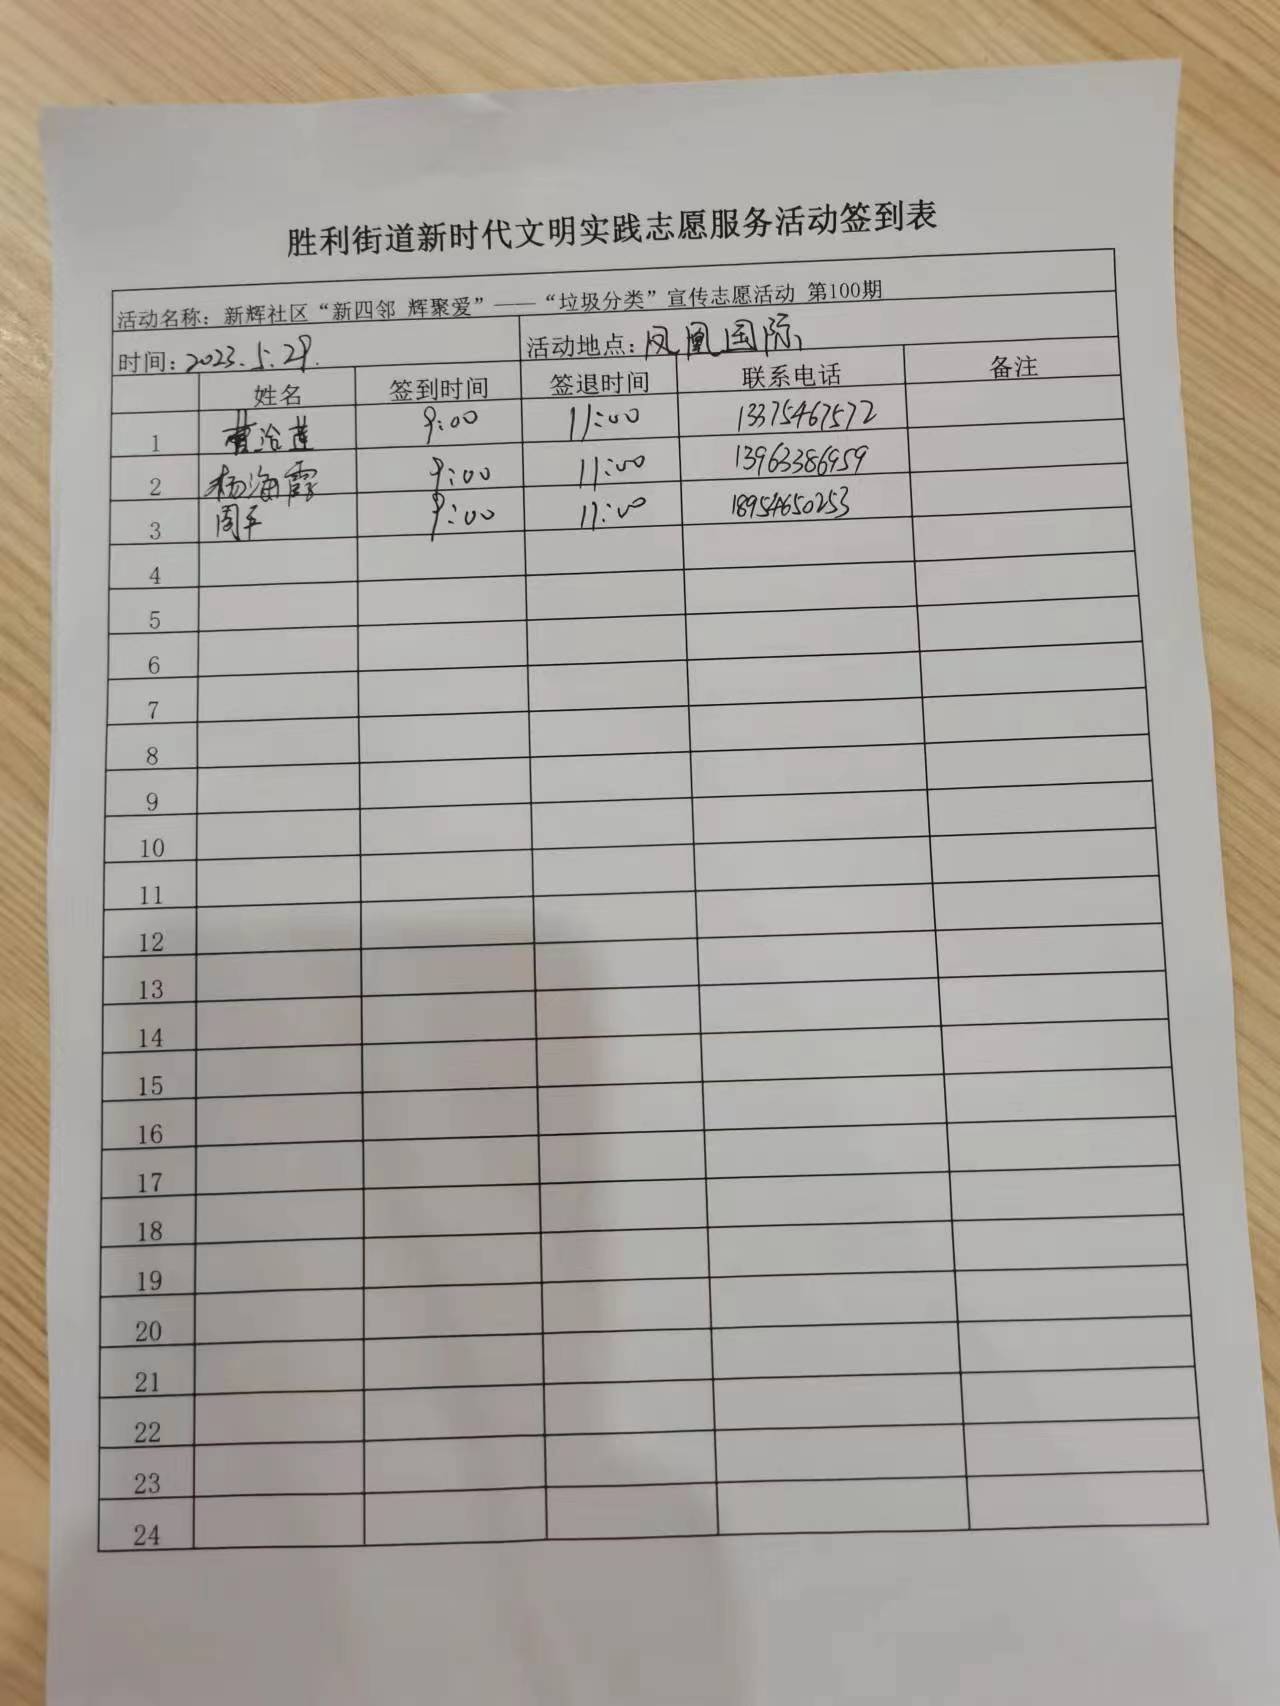 胜利街道新时代文明实践志愿服务活动签到表
活动名称：新辉社区“新四邻 辉聚爱”——“垃圾分类”宣传志愿活动 第100期
时间：2023.5.29. 活动地点：凤凰国际
姓名 签到时间 签退时间 联系电话 备注
1 曹治莲 9:00 11:00 13375467572
2 杨海霞 9:00 11:00 13963386959
3 周平 9:00 11:00 18954650253
4
5
6
7
8
9
10
11
12
13
14
15
16
17
18
19
20
21
22
23
24